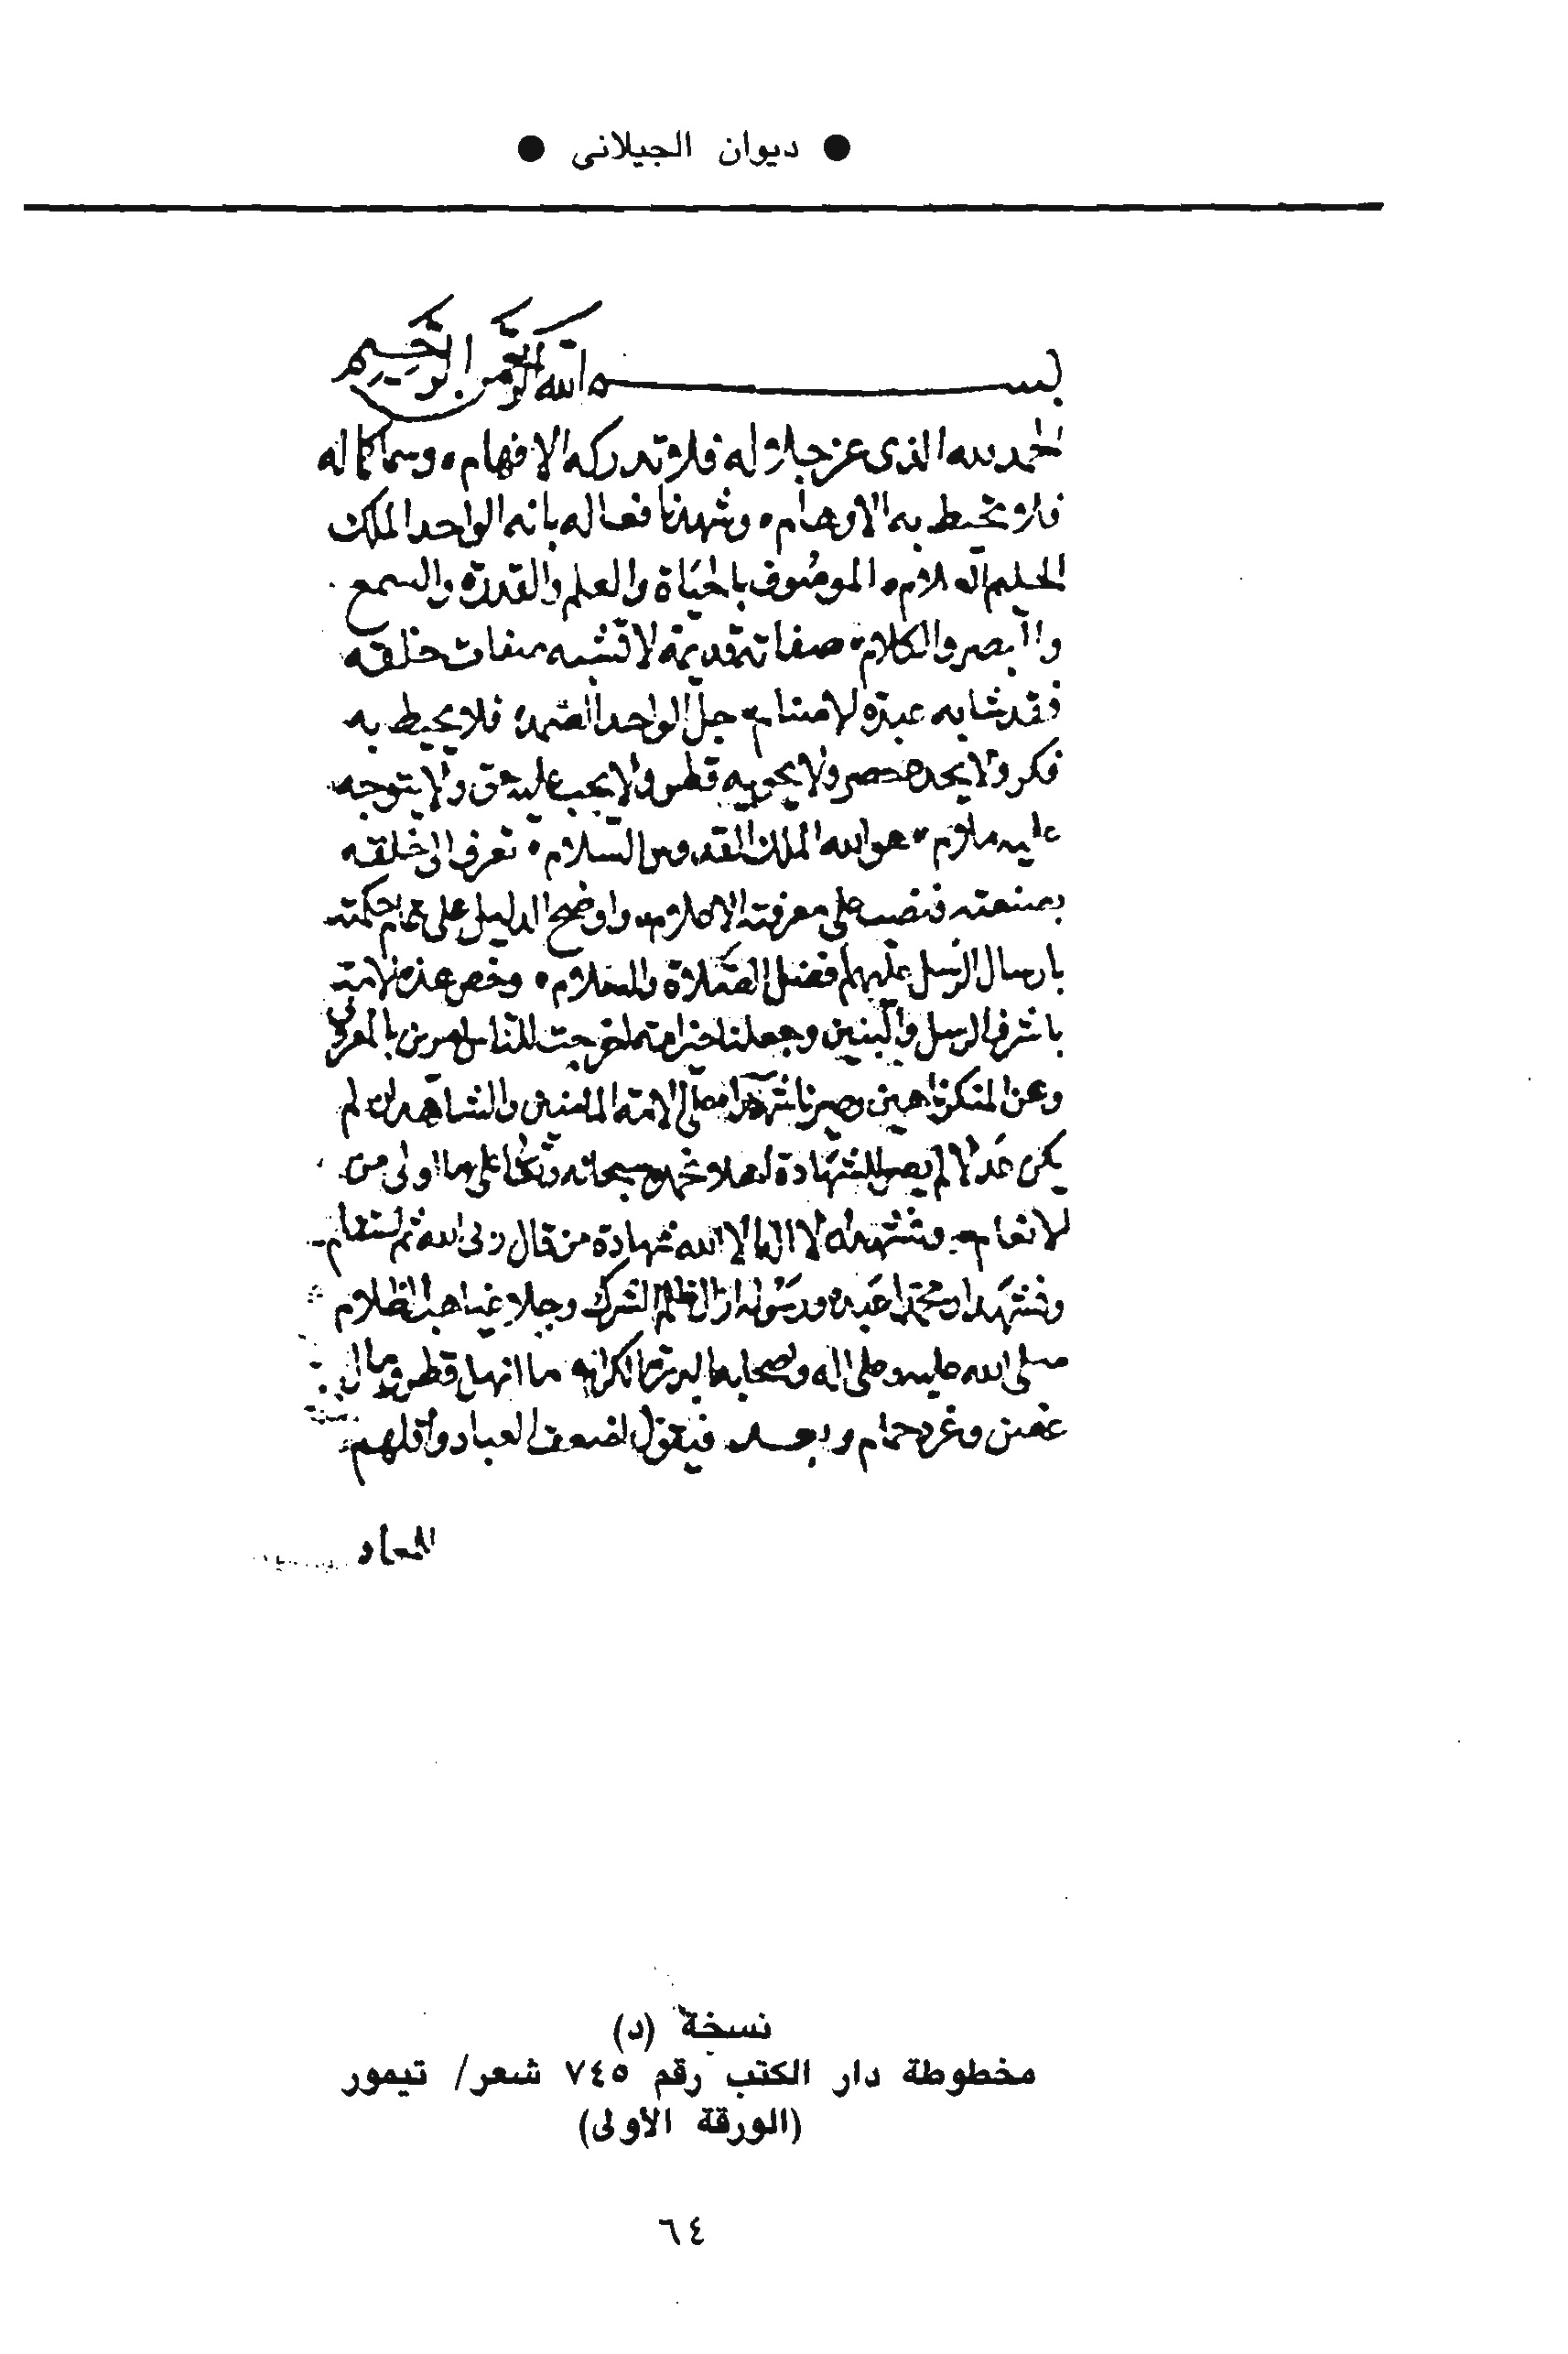 ● ديوان الجيلانى ●
بسم الله الرحمن الرحيم
الحمد لله الذى عز جلاله فلا تدركه الافهام وسما كماله
فلا يحيط به الاوهام وشهدنا فعاله بانه الواحد الملك
الموصوف بالحياة والعلم والقدرة والسمع
والبصر والكلام صفاته قديمة لا تشبه صفات خلقه
فقد شابه عبدة الاصنام جل الواحد الصمد فلا يحيط به
فكر ولا يحده حصر ولا يحويه قطر ولا يجب عليه حق ولا يتوجه
عليه ملام هو الله الملك القدوس السلام تعرف الى خلقه
بصنعته فنصب على معرفته الاعلام واوضح الدليل على تمام حكمته
بارسال الرسل عليهم افضل الصلاة والسلام وخص هذه الامة
باشرف الرسل والنبيين وجعلنا خير امة اخرجت للناس امرين بالمعروف
وعن المنكر ناهين وصيرنا شهدا على الامة والشاهد ان لم
يكن عدلا لم يصل للشهادة سبحانه وتعالى على ما اولى من
الانعام ونشهد ان لا اله الا الله شهادة من قال ربى الله ثم استقام
ونشهد ان محمدا عبده ورسوله ازال ظلم الشرك وجلا غياهب الظلام
صلى الله عليه وعلى اله وصحابه البررة الكرام ما انهل قطر ومال
غصن وغرد حمام وبعد فيقول اضعف العباد واقلهم
نسخة (د)
مخطوطة دار الكتب رقم ٧٤٥ شعر/ تيمور
(الورقة الأولى)
٦٤